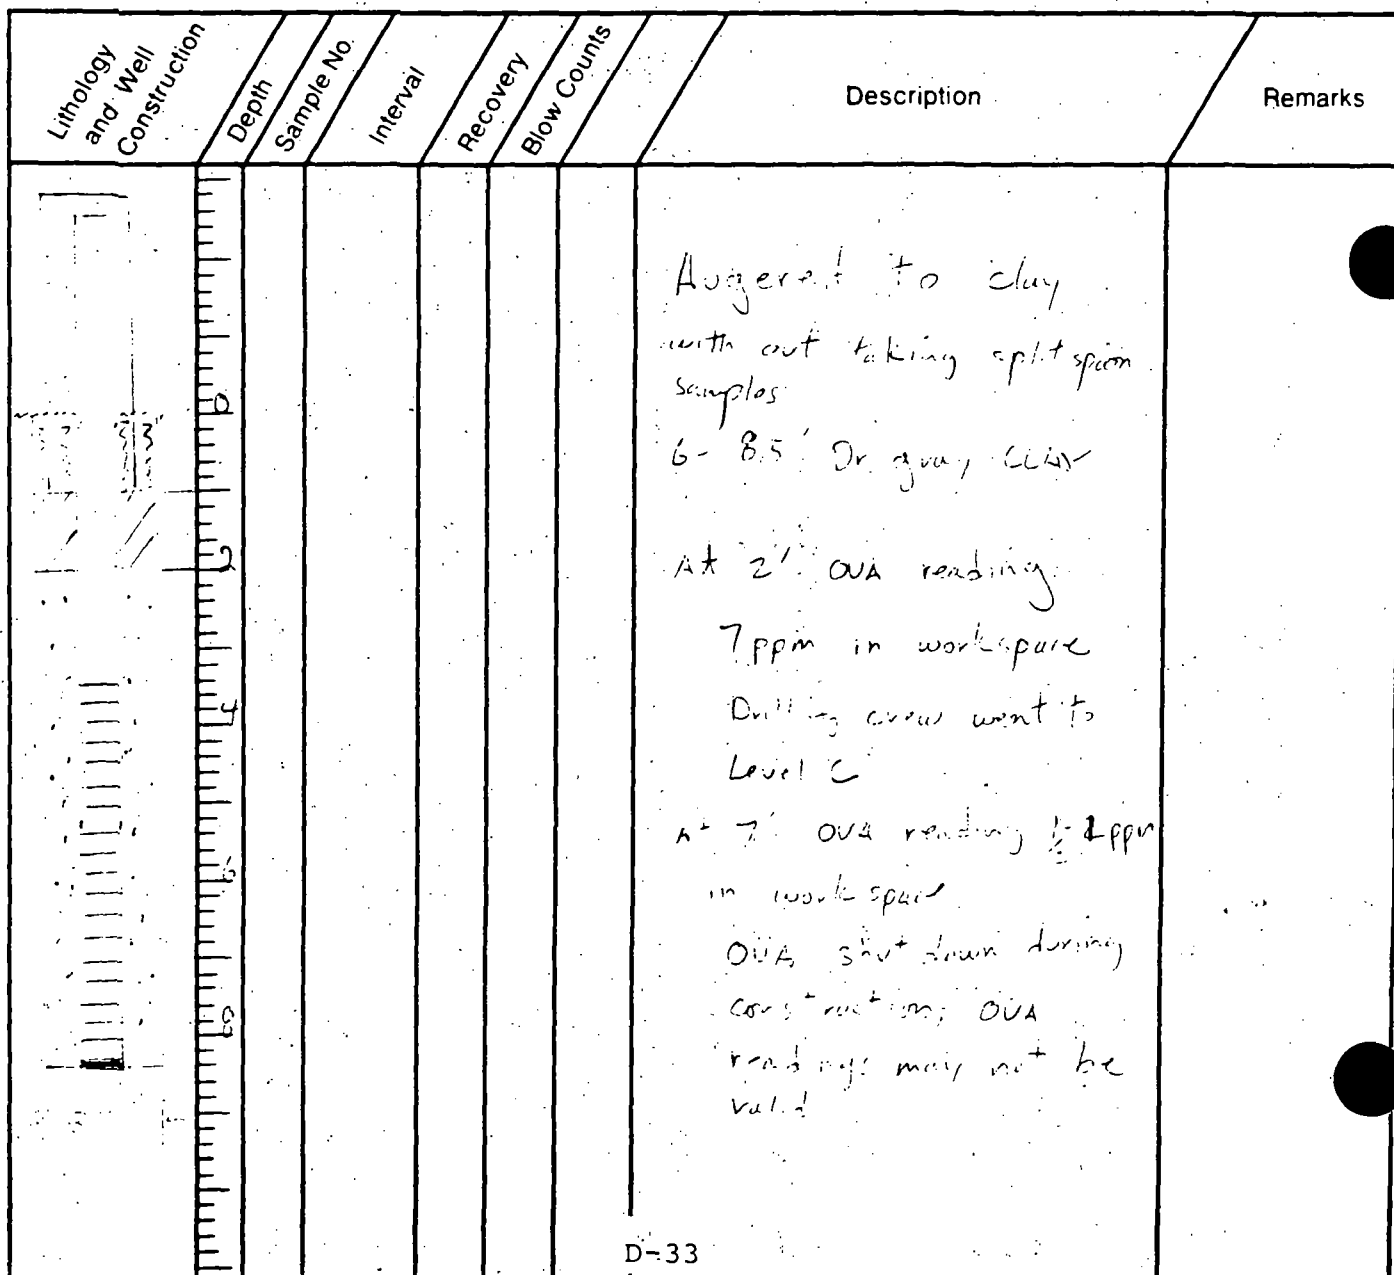 Lithology
and Well
Construction
Depth
Sample No.
Interval
Recovery
Blow Counts
Description
Remarks
Augered to clay
with out taking split spoon
samples
6- 8.5' Dr. gray CLAY
At 2' OVA reading
7 ppm in workspace
Drilling crew went to
Level C
At 7' OVA reading ppm
in work space
OVA shut down during
construction; OVA
readings may not be
valid
0
2
4
6
8
D-33